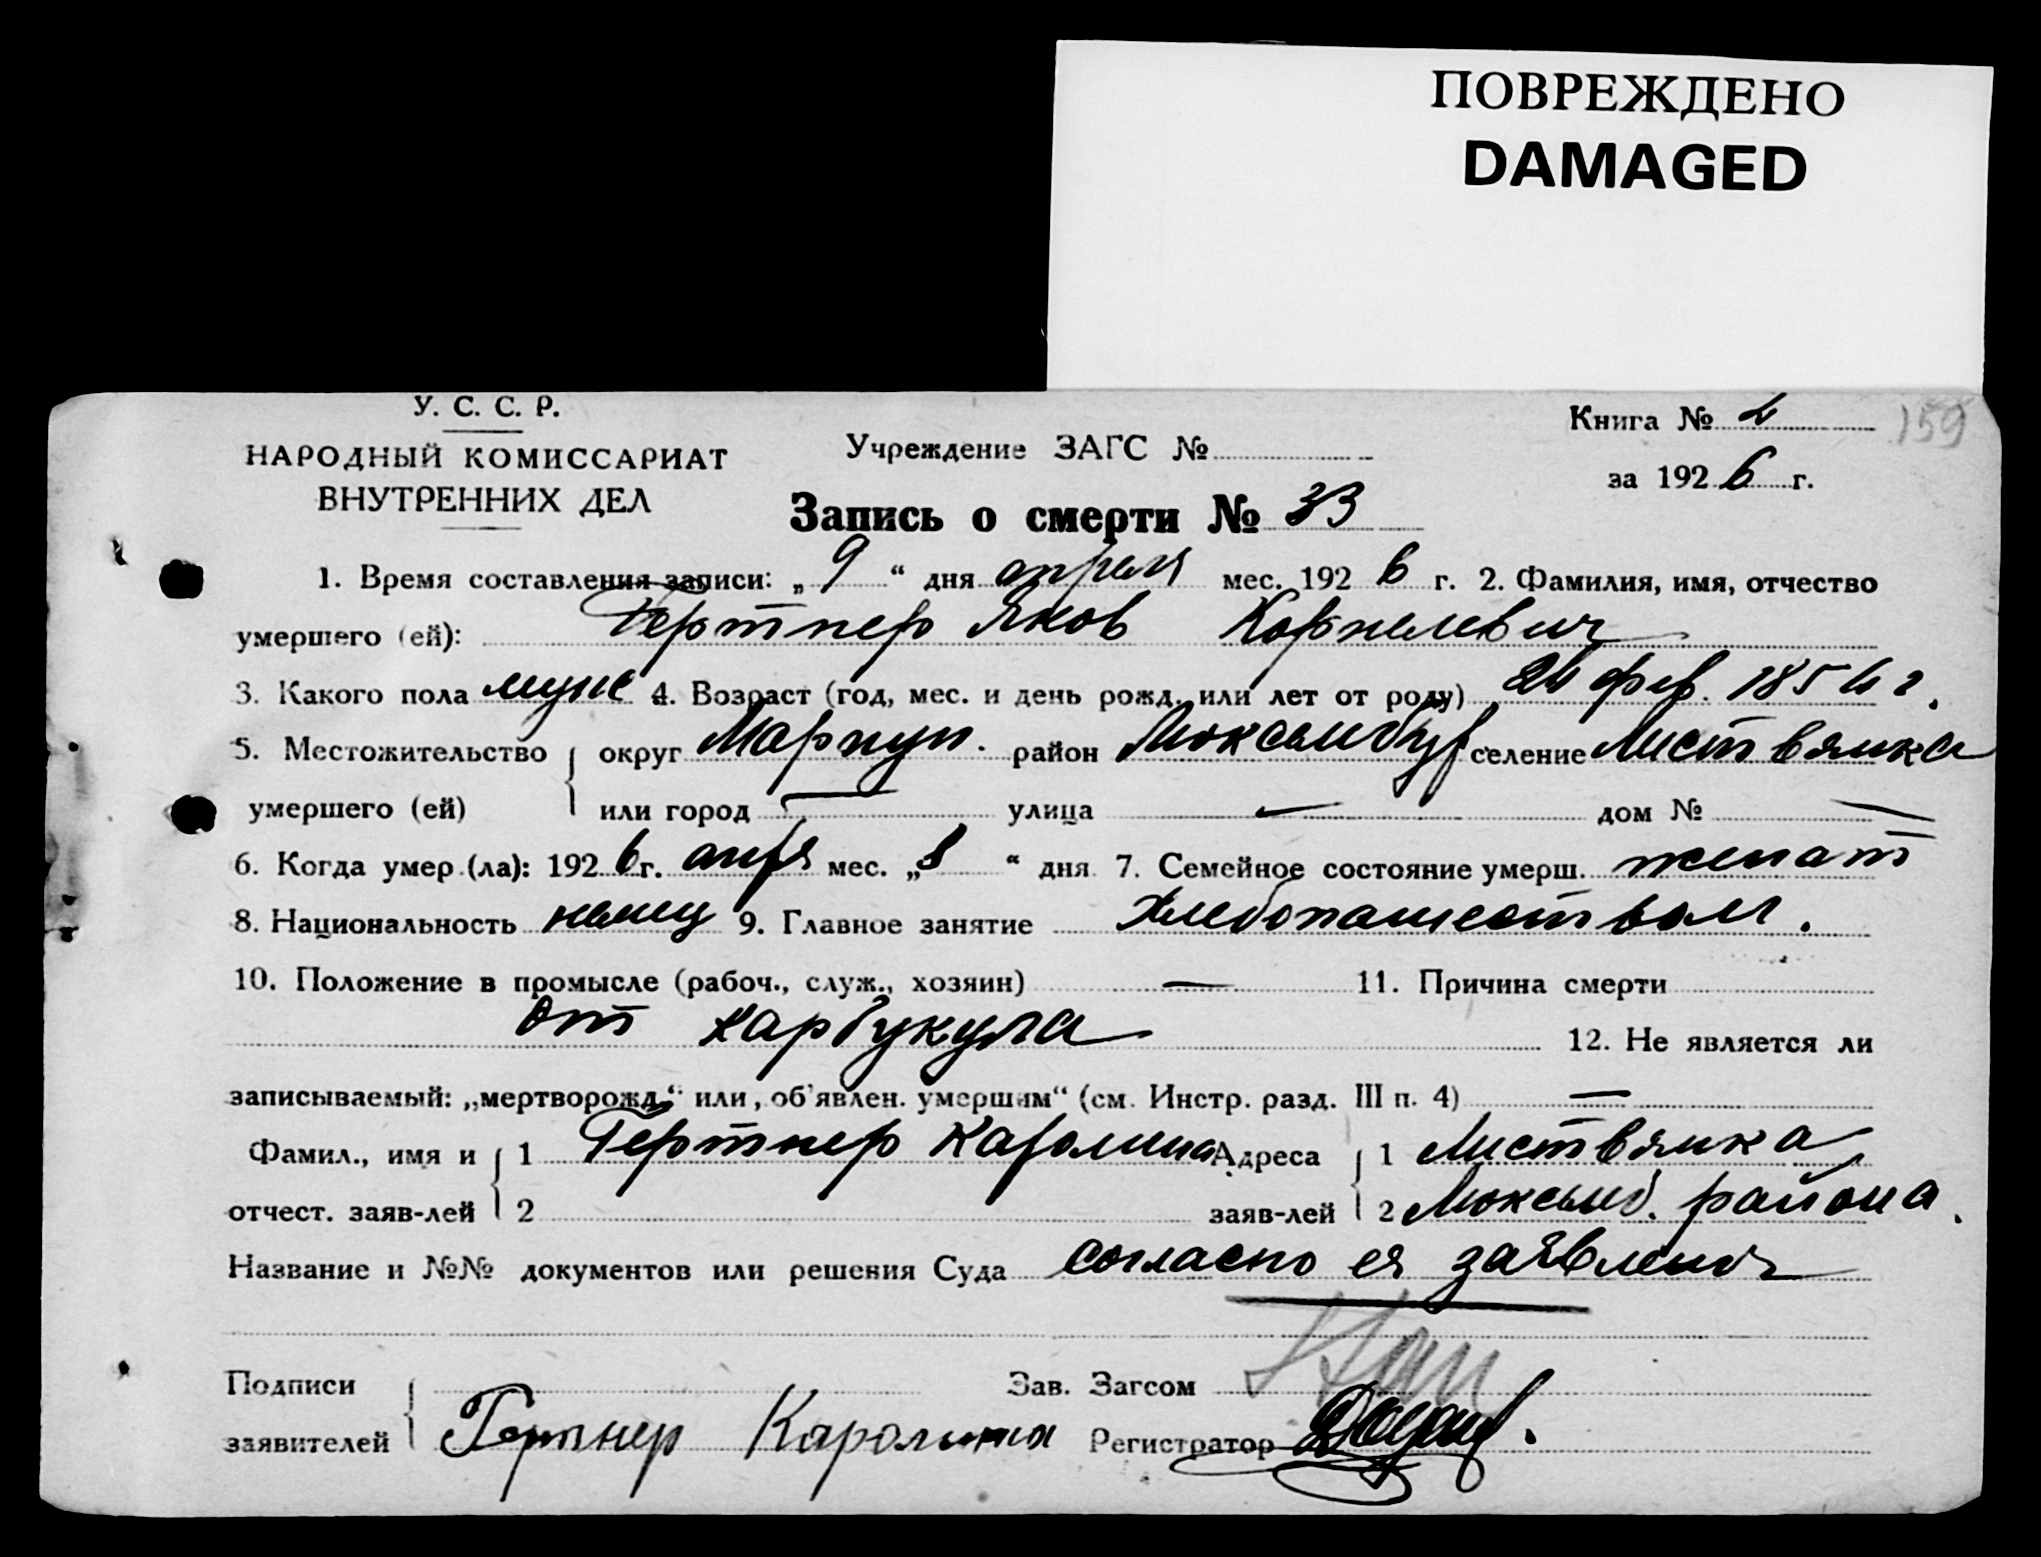 ПОВРЕЖДЕНО
DAMAGED
У. С. С. Р.
НАРОДНЫЙ КОМИССАРИАТ
ВНУТРЕННИХ ДЕЛ
Учреждение ЗАГС №
Книга № 2
159
за 1926 г.
Запись о смерти № 33
1. Время составления записи: „9“ дня апреля мес. 1926 г. 2. Фамилия, имя, отчество
умершего (ей): Гертнер Яков Корнелевич
3. Какого пола муж 4. Возраст (год, мес. и день рожд. или лет от роду) фев. 185 г.
5. Местожительство округ Мариуп. район Люксамбур селение Листвянка
умершего (ей) или город — улица — дом № —
6. Когда умер (ла): 1926 г. апря мес. „8“ дня 7. Семейное состояние умерш. женат
8. Национальность немец 9. Главное занятие Хлебопашеством.
10. Положение в промысле (рабоч., служ., хозяин) — 11. Причина смерти
От карбукула 12. Не является ли
записываемый: „мертворожд.“ или „об'явлен. умершим“ (см. Инстр. разд. III п. 4) —
Фамил., имя и 1 Гертнер Каролина Адреса 1 Листвянка
отчест. заяв-лей 2 заяв-лей 2 Люксемб. района.
Название и №№ документов или решения Суда согласно ея заявления
Подписи Зав. Загсом
заявителей Гертнер Каролина Регистратор